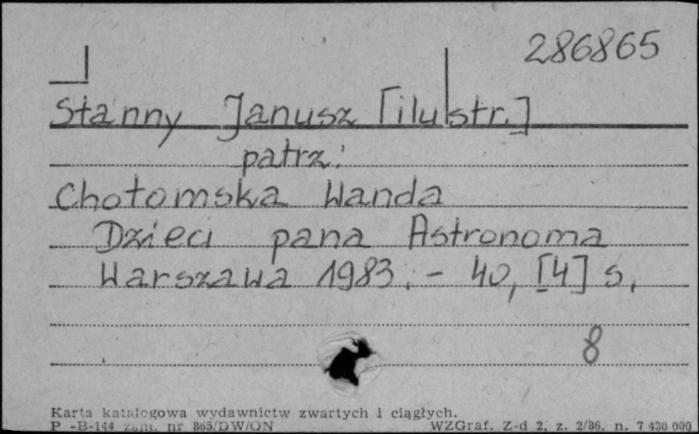 286865
Stanny Janusz [ilustr.]
patrz:
Chotomska Wanda
Dzieci pana Astronoma
Warszawa 1983. - 40, [4] s.
8
Karta katalogowa wydawnictw zwartych i ciągłych.
P-B-144 zam. nr 865/DW/ON WZGraf. Z-d 2, z. 2/86, n. 7 430 000